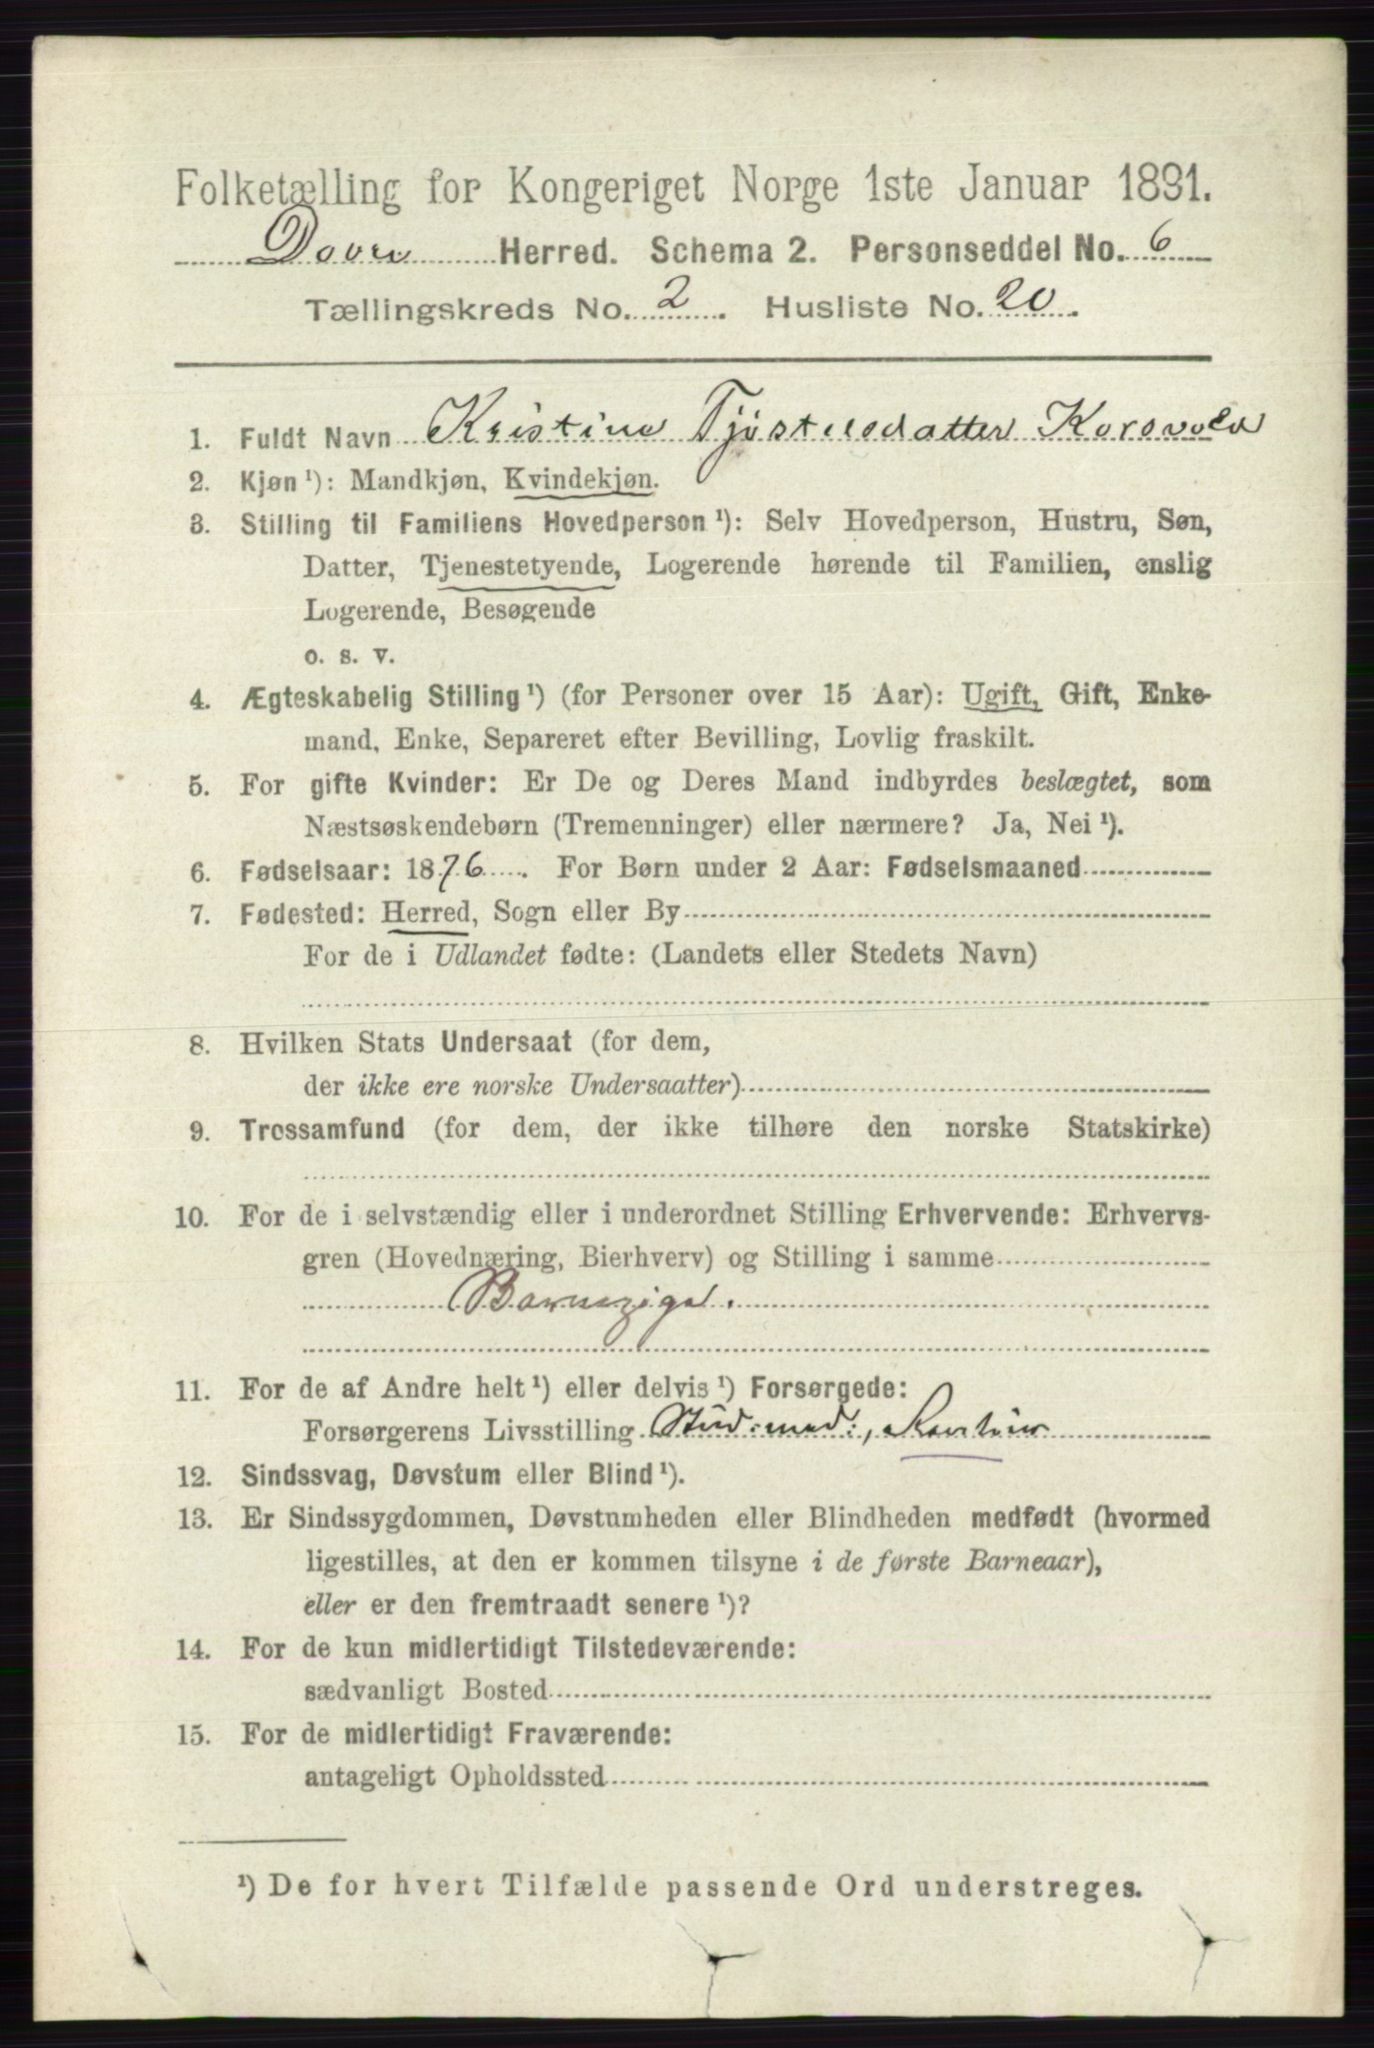 Folketælling for Kongeriget Norge 1ste Januar 1891.
Dovre Herred. Schema 2. Personseddel No. 6
Tællingskreds No. 2. Husliste No. 20.
1. Fuldt Navn Kristine Tjøstelsdatter Korsvold
2. Kjøn ¹): Mandkjøn, Kvindekjøn.
3. Stilling til Familiens Hovedperson ¹): Selv Hovedperson, Hustru, Søn,
Datter, Tjenestetyende, Logerende hørende til Familien, enslig
Logerende, Besøgende
o. s. v.
4. Ægteskabelig Stilling ¹) (for Personer over 15 Aar): Ugift, Gift, Enke-
mand, Enke, Separeret efter Bevilling, Lovlig fraskilt.
5. For gifte Kvinder: Er De og Deres Mand indbyrdes beslægtet, som
Næstsøskendebørn (Tremenninger) eller nærmere? Ja, Nei ¹).
6. Fødselsaar: 1876. For Børn under 2 Aar: Fødselsmaaned
7. Fødested: Herred, Sogn eller By
For de i Udlandet fødte: (Landets eller Stedets Navn)
8. Hvilken Stats Undersaat (for dem,
der ikke ere norske Undersaatter)
9. Trossamfund (for dem, der ikke tilhøre den norske Statskirke)
10. For de i selvstændig eller i underordnet Stilling Erhvervende: Erhvervs-
gren (Hovednæring, Bierhverv) og Stilling i samme
Barnepige.
11. For de af Andre helt ¹) eller delvis ¹) Forsørgede:
Forsørgerens Livsstilling Stud: med:,
12. Sindssvag, Døvstum eller Blind ¹).
13. Er Sindssygdommen, Døvstumheden eller Blindheden medfødt (hvormed
ligestilles, at den er kommen tilsyne i de første Barneaar),
eller er den fremtraadt senere ¹)?
14. For de kun midlertidigt Tilstedeværende:
sædvanligt Bosted
15. For de midlertidigt Fraværende:
antageligt Opholdssted
¹) De for hvert Tilfælde passende Ord understreges.